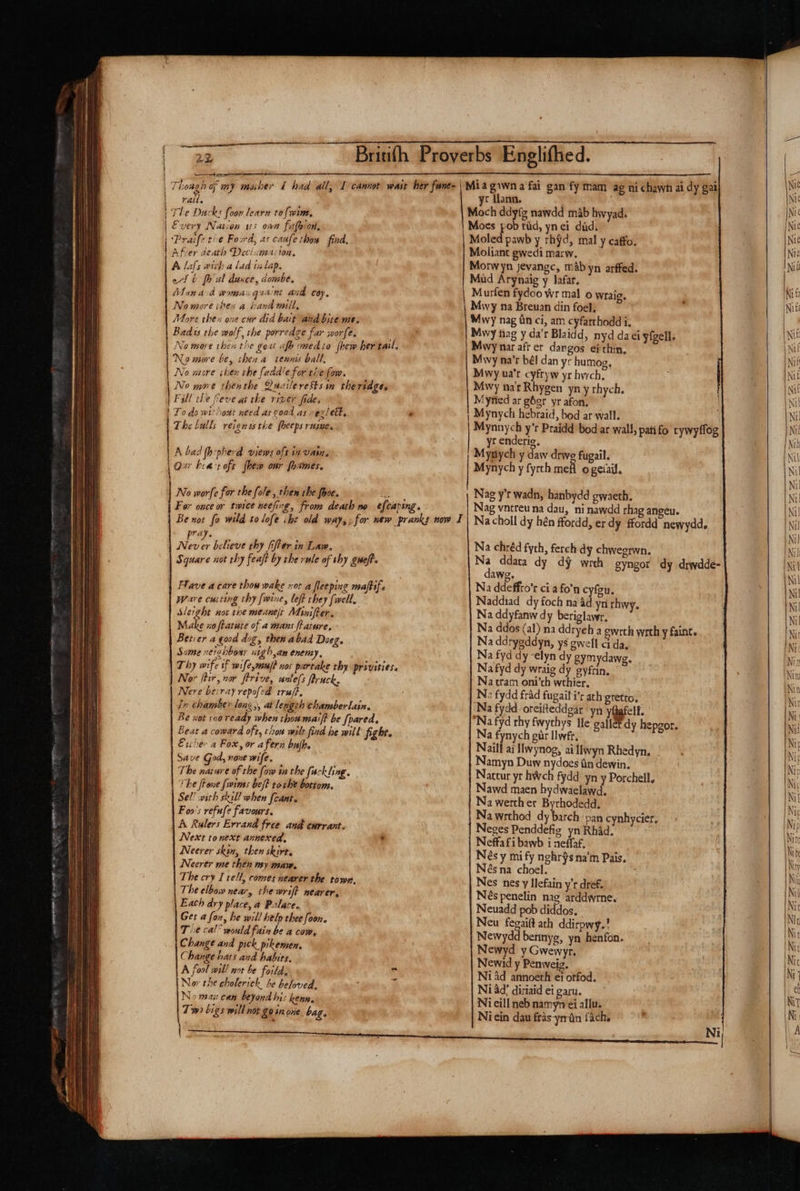 22
British Proverbs Englished.
Though of my mother I had all, I cannot wait her fune-
rall.
The Ducks soon learn to swim.
Every Nation us own fashion.
Praise the Ford, as cause thou find.
After death Declamation.
A lass with a lad in lap.
dance, dombe.
Man a d woman quaint and coy.
No more then a hand mill.
More then one cur did bait and bite me.
Bad is the wolf, the porredge far worse.
No more then the gout asb omed to shew her tail.
No more be, then a tennis ball.
No more then the saddle for the sow.
No more then the Quaile rests in theridge.
Fill the sieve at the river side.
To do without need as good as neglect.
The bulls reign is the sheeps ruine.
A bad shepherd views oft in vain.
Our bea s oft shew our shames.
No worse for the sole, then the shoe.
For once or twice neesing, from death no escaping.
Be not so wild to lose the old way, for new pranks now I
pray.
Never believe thy sister in Law.
Square not thy feast by the rule of thy guest.
Have a care thou wake not a sleeping mastif.
Ware cutting thy swine, lest they swell.
Sleight not the meanest Minister.
Make no stature of a mans stature.
Better a good dog, then abad Doeg.
Some neighbour nigh, an enemy.
Thy wife if wise, must not partake thy privities.
Nor stir, nor strive, unless struck.
Nere betray reposed trust.
In chamber long, at length chamberlain.
Be not too ready when thou maist be spared.
Beat a coward oft, thou wilt find he will fight.
Either a Fox, or a fern bush.
Save God, none wise.
The nature of the sow in the suckling.
The stone swims best to the bottom.
Sell with skill when scant.
Foo's refuse favours.
A Rulers Errand free and currant.
Next to next annexed.
Neerer skin, then skirt.
Neerer me then my maw.
The cry I tell, comes nearer the town.
The elbow near, the wrist nearer.
Each dry place, a Palace.
Get a son, he will help thee soon.
The calf would fain be a cow.
Change and pick pikemen.
Change hats and habits.
A fool will not be foild.
Nor the cholerick, be beloved.
No man can beyond his kenn.
Two bigs will not go in one bag.
Mi a gawn a fai gan fy mam ag ni chawn ai dy gail
yr llann.
Moch ddysg nawdd mâb hwyad.
Moes pob tûd, yn ei dûd.
Moled pawb y rhŷd, mal y caffo.
Moliant gwedi marw.
Morwyn jevangc, mâb yn arffed.
Mûd Arynaig y lafar.
Mursen fydoo ŵr mal o wraig.
Mwy na Breuan din foel.
Mwy nag ûn ci, am cyfarthodd i.
Mwy nag y da'r Blaidd, nyd da ei ysgell.
Mwy nar afr er dangos ei thin.
Mwy na'r bêl dan yr humog.
Mwy ua'r cyfryw yr hwch.
Mwy na'r Rhygen yn y rhych.
Myned ar gôgr yr afon.
Mynych hebraid, bod ar wall.
Mynnych y'r Praidd bod ar wall, pan fo rywyffog
yr enderig.
Mynych y daw drwg fugail.
Mynych y fyrth mefl o geiail.
Nag y'r wadn, hanbydd gwaeth.
Nag vntreu na dau, ni nawdd rhag angeu.
Na choll dy hên ffordd, er dy ffordd newydd.
Na chrêd fyth, ferch dy chwegrwn.
Na ddara dy dŷ wrth gyngor dy drwdde-
dawg.
Na ddeffro'r ci a fo'n cysgu.
Naddiad dy foch na âd yn rhwy.
Na ddyfanw dy beriglawr.
Na ddos (al) na ddryeh a gwrth wrth y faint.
Na ddrygddyn, ys gwell ci da.
Na fyd dy elyn dy gymydawg.
Na fyd dy wraig dy gyfrin.
Na tram oni'th wthier.
Na fydd frâd fugail i'r ath gretto.
Na fydd oreisteddgar yn ystafell.
Na fyd rhy fwythys lle gallef dy hepgor.
Na fynych gûr llwfr.
Naill ai llwynog, ai llwyn Rhedyn.
Namyn Duw nydoes ûn dewin.
Nattur yr hŵch fydd yn y Porchell.
Nawd maen bydwaelawd.
Na werth er Byrhodedd.
Na wrthod dy barch pan cynhycier.
Neges Penddefig yn Rhâd.
Neffaf i bawb i neffaf.
Nês y mi fy nghrŷs na'm Pais.
Nês na choel.
Nes nes y llefain y'r dref.
Nês penelin nag arddwrne.
Neuadd pob diddos.
Neu fegaist ath ddirpwy.
Newydd bennyg, yn henfon.
Newyd y Gwewyr.
Newid y Penweig.
Ni âd annoeth ei orfod.
Ni âd' diriaid ei garu.
Ni eill neb namyn ei allu.
Ni ein dau frâs yn ûn fâch.
Ni